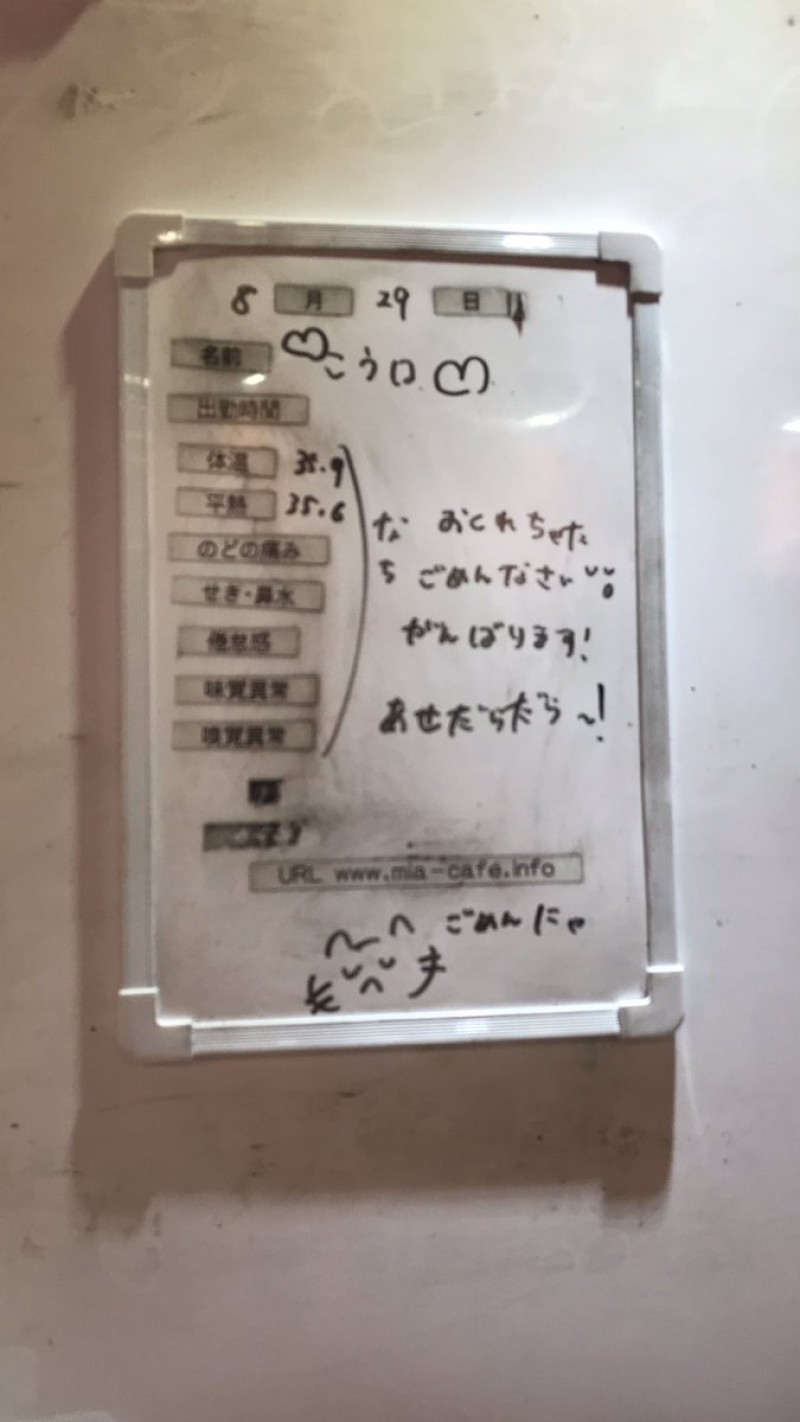 8 月 29 日
名前 こう
出勤時間
体温 35.9
平熱 35.6
のどの痛み
せき・鼻水
倦怠感
味覚異常
嗅覚異常
おくれちゃた
ごめんなさい
がんばります!
あせだらだら〜!
URL www.mia-cafe.info
ごめんにゃ